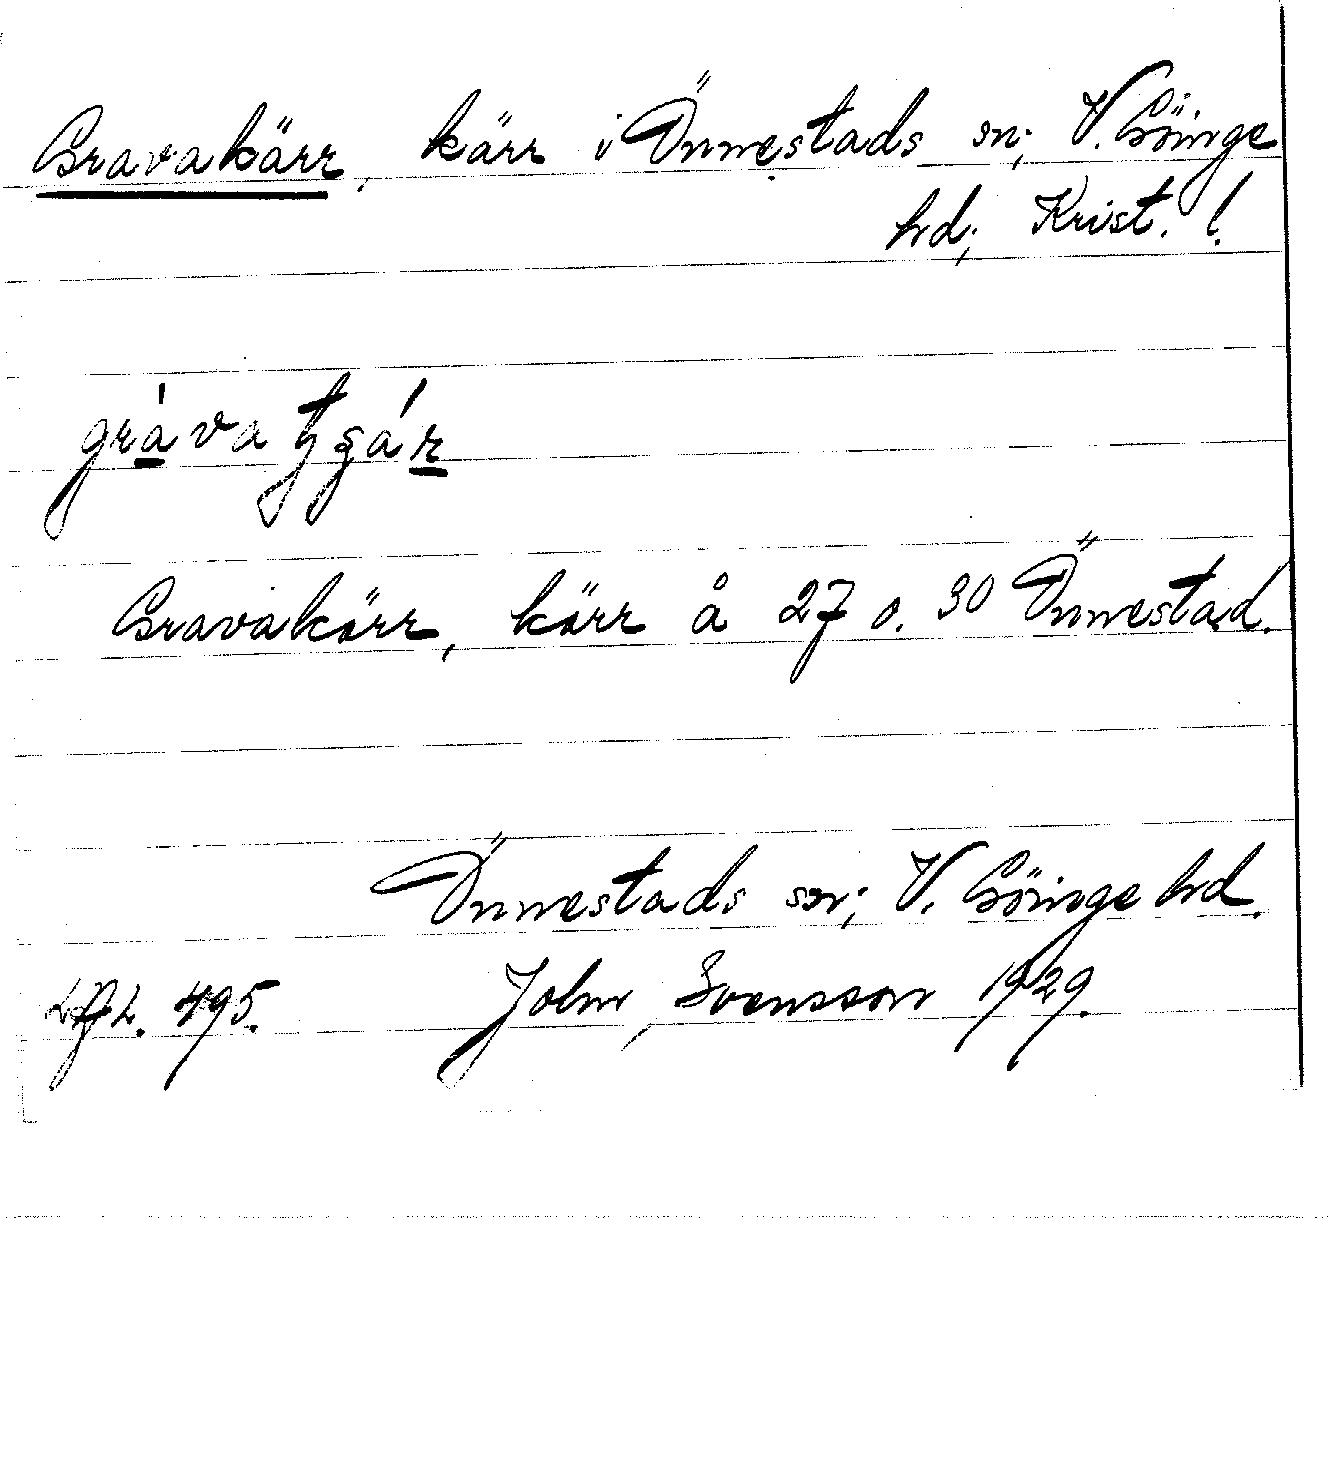 Gravakärr, kärr i Önnestads sn; V. Göinge
hd; Krist. l.
Gravakärr, kärr å 27 o. 30 Önnestad.
Önnestads sn; V. Göinge hd.
495. John Svensson 1929.